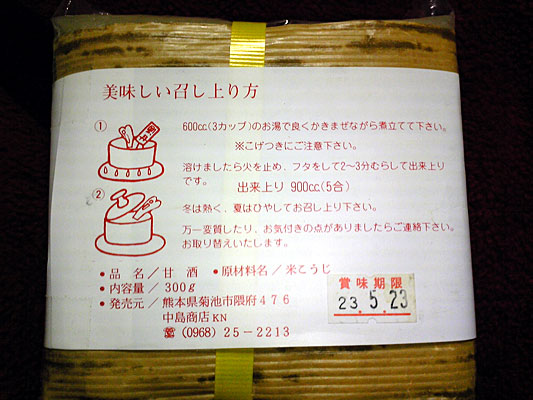 美味しい召し上り方
① 600cc(3カップ)のお湯で良くかきまぜながら煮立てて下さい。
※こげつきにご注意下さい。
溶けましたら火を止め、フタをして2〜3分むらして出来上り
です。
出来上り 900cc(5合)
② 冬は熱く、夏はひやしてお召し上り下さい。
万一変質したり、お気付きの点がありましたらご連絡下さい。
お取り替えいたします。
• 品 名／甘 酒 • 原材料名／米こうじ
• 内容量／300g
• 発売元／熊本県菊池市隈府476
中島商店 KN
☎(0968)25-2213
賞味期限
23.5.23